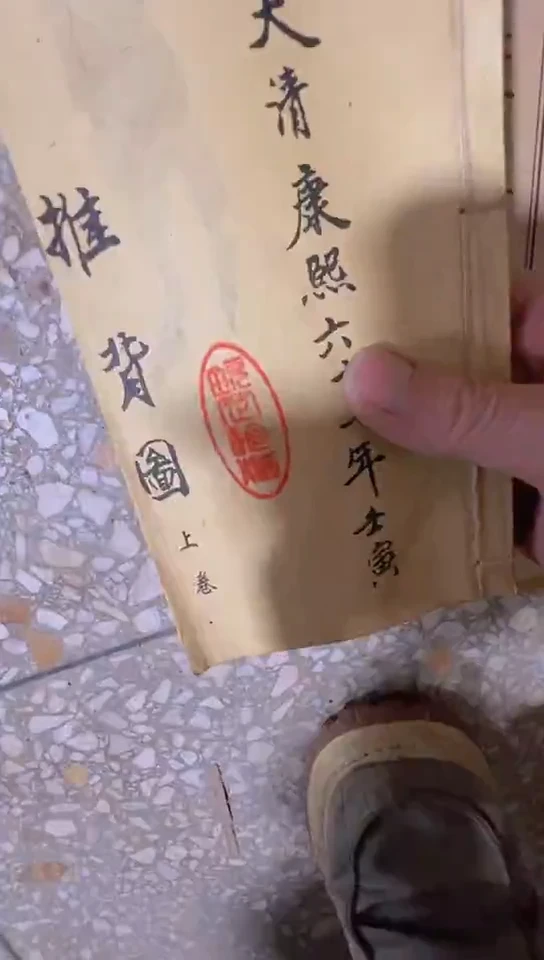 大清康熙六年壬寅
推背圖
上卷